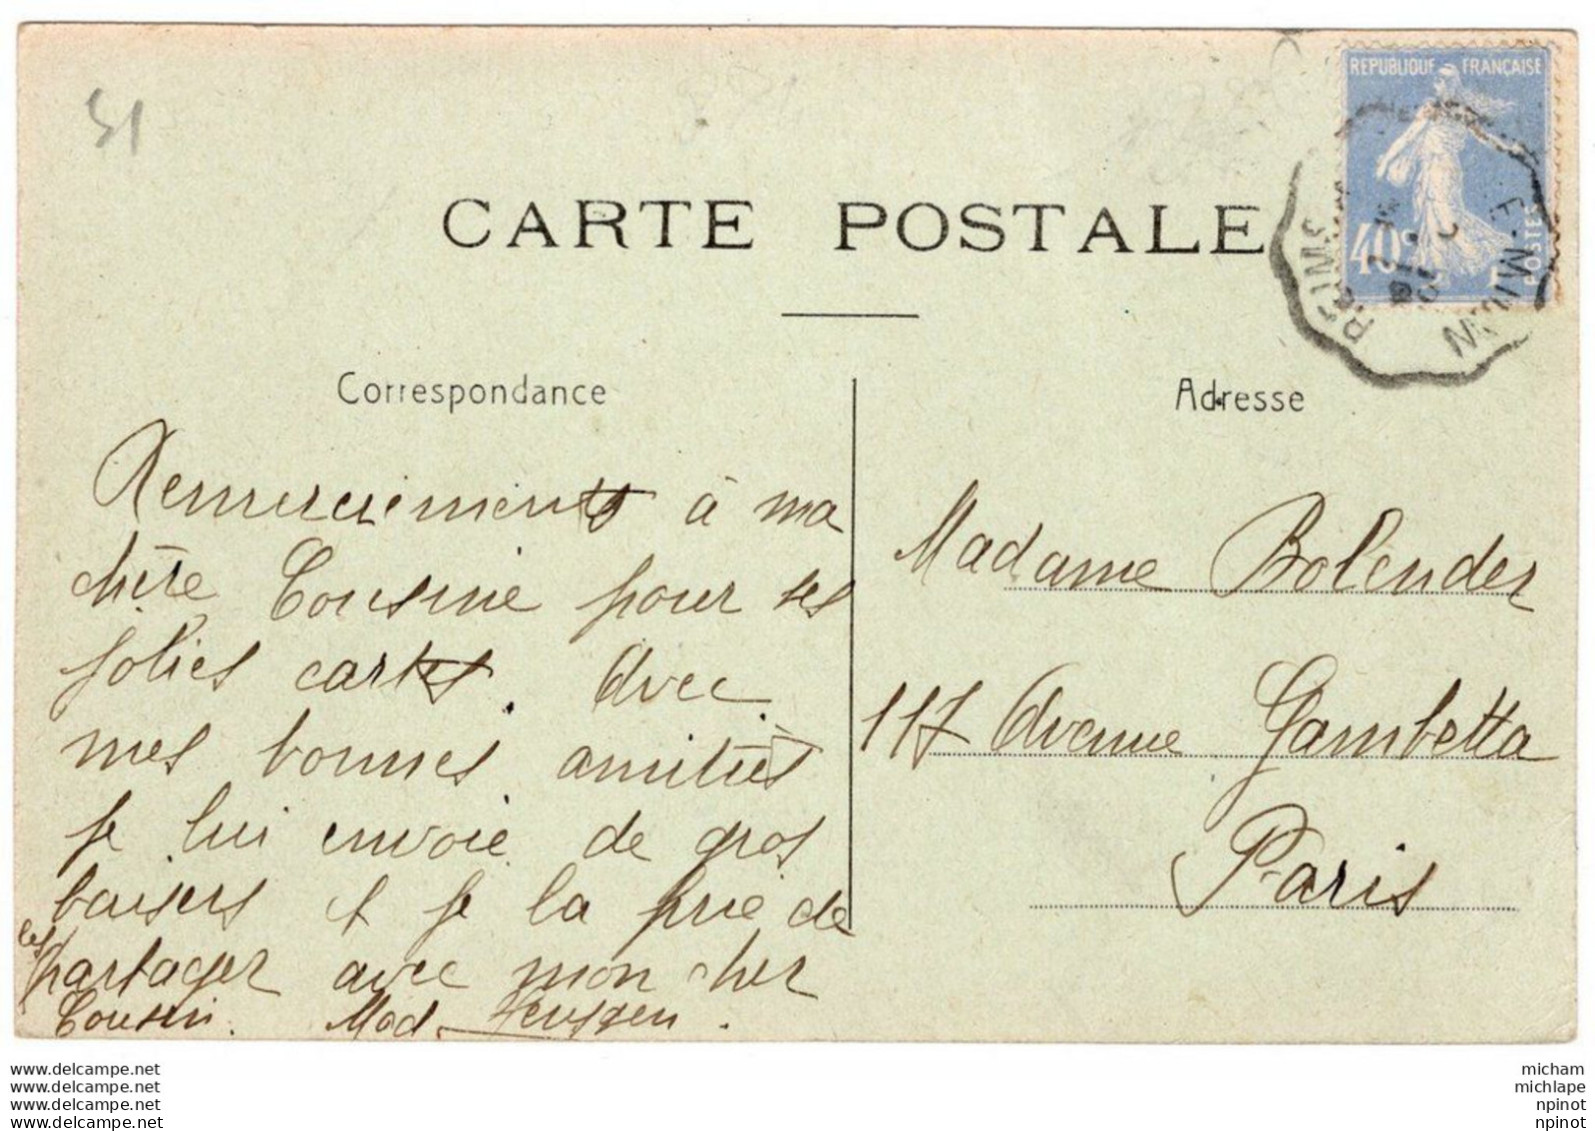 51
CARTE POSTALE
REPUBLIQUE FRANÇAISE
40c
POSTES
REIMS
Correspondance
Remerciements à ma
chère Cousine pour ses
jolies cartes. Avec
mes bonnes amitiés
je lui envoie de gros
baisers et je la prie de
les partager avec mon cher
Cousin. Mad.
Adresse
Madame Bolender
117 Avenue Gambetta
Paris
www.delcampe.net
www.delcampe.net
www.delcampe.net
www.delcampe.net
micham
michlape
npinot
npinot